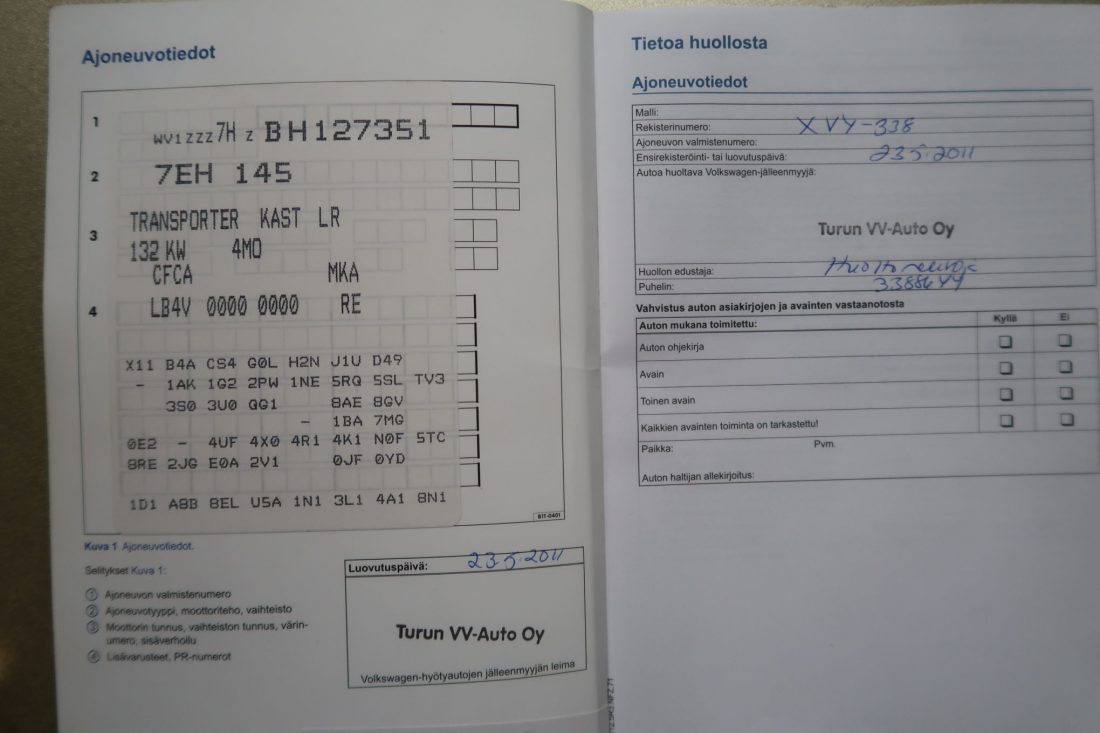 Ajoneuvotiedot
1
WV1ZZZ7H Z BH127351
2
7EH 145
3
TRANSPORTER KAST LR
132 KW 4MO
CFCA MKA
4
LB4V 0000 0000 RE
X11 B4A CS4 G0L H2N J1U D49
- 1AK 1G2 2PW 1NE 5RQ 5SL TV3
3S0 3U0 GG1 8AE 8GV
- 1BA 7MG
0E2 - 4UF 4X0 4R1 4K1 N0F 5TC
8RE 2JG E0A 2V1 0JF 0YD
1D1 A8B 8EL U5A 1N1 3L1 4A1 8N1
B1T-0401
Kuva 1 Ajoneuvotiedot.
Selitykset Kuva 1:
① Ajoneuvon valmistenumero
② Ajoneuvotyyppi, moottoriteho, vaihteisto
③ Moottorin tunnus, vaihteiston tunnus, värin-
umero, sisäverhoilu
④ Lisävarusteet, PR-numerot
Luovutuspäivä: 23.5.2011
Turun VV-Auto Oy
Volkswagen-hyötyautojen jälleenmyyjän leima
Tietoa huollosta
Ajoneuvotiedot
Malli:
Rekisterinumero: XVY-338
Ajoneuvon valmistenumero:
Ensirekisteröinti- tai luovutuspäivä: 23.5.2011
Autoa huoltava Volkswagen-jälleenmyyjä:
Turun VV-Auto Oy
Huollon edustaja: Huoltoneuvoja
Puhelin: 3388644
Vahvistus auton asiakirjojen ja avainten vastaanotosta
Auton mukana toimitettu: Kyllä Ei
Auton ohjekirja ❑ ❑
Avain ❑ ❑
Toinen avain ❑ ❑
Kaikkien avainten toiminta on tarkastettu! ❑ ❑
Paikka: Pvm.
Auton haltijan allekirjoitus: